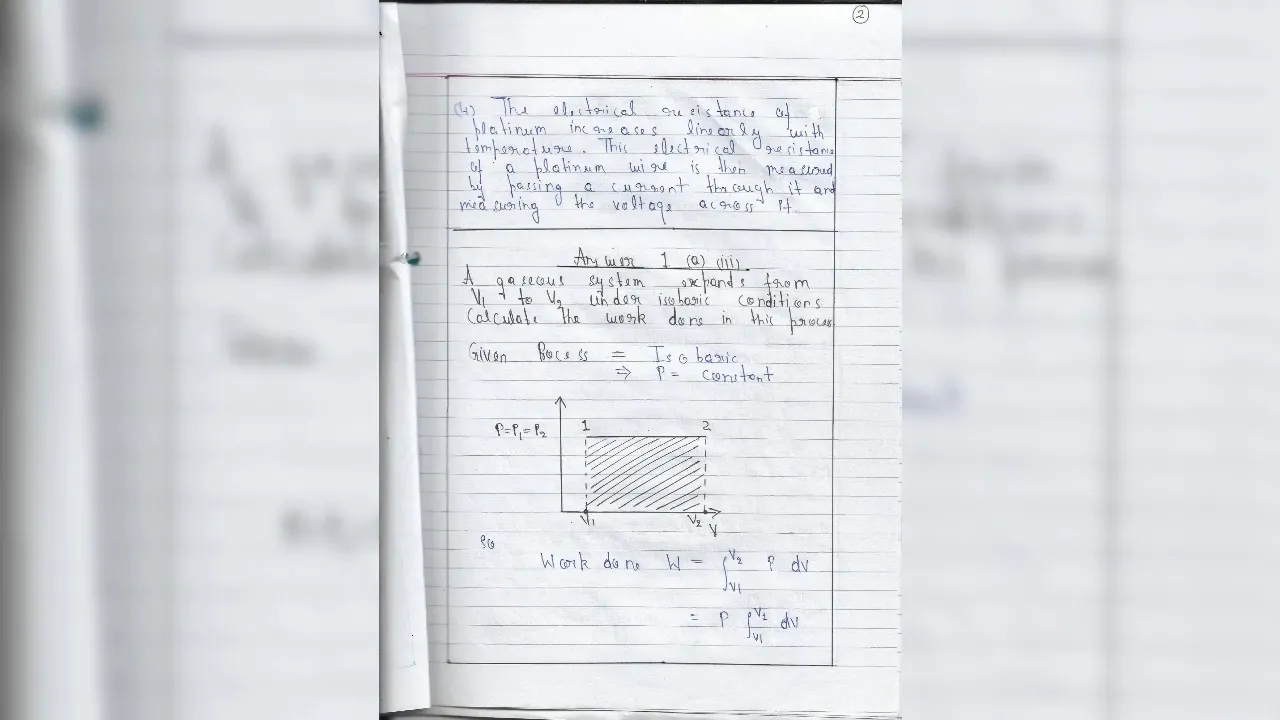 2
(4) The electrical resistance of
platinum increases linearly with
temperature. This electrical resistance
of a platinum wire is then measured
by passing a current through it and
measuring the voltage across it.
Answer 1 (a) (iii)
A gaseous system expands from
V1 to V2 under isobaric conditions
Calculate the work done in this process
Given Pocess = Isobaric
⇒ P = constant
P=P1=P2 1 2
V1 V2 V
So
Work done W = ∫V1V2 P dV
= P ∫V1V2 dV